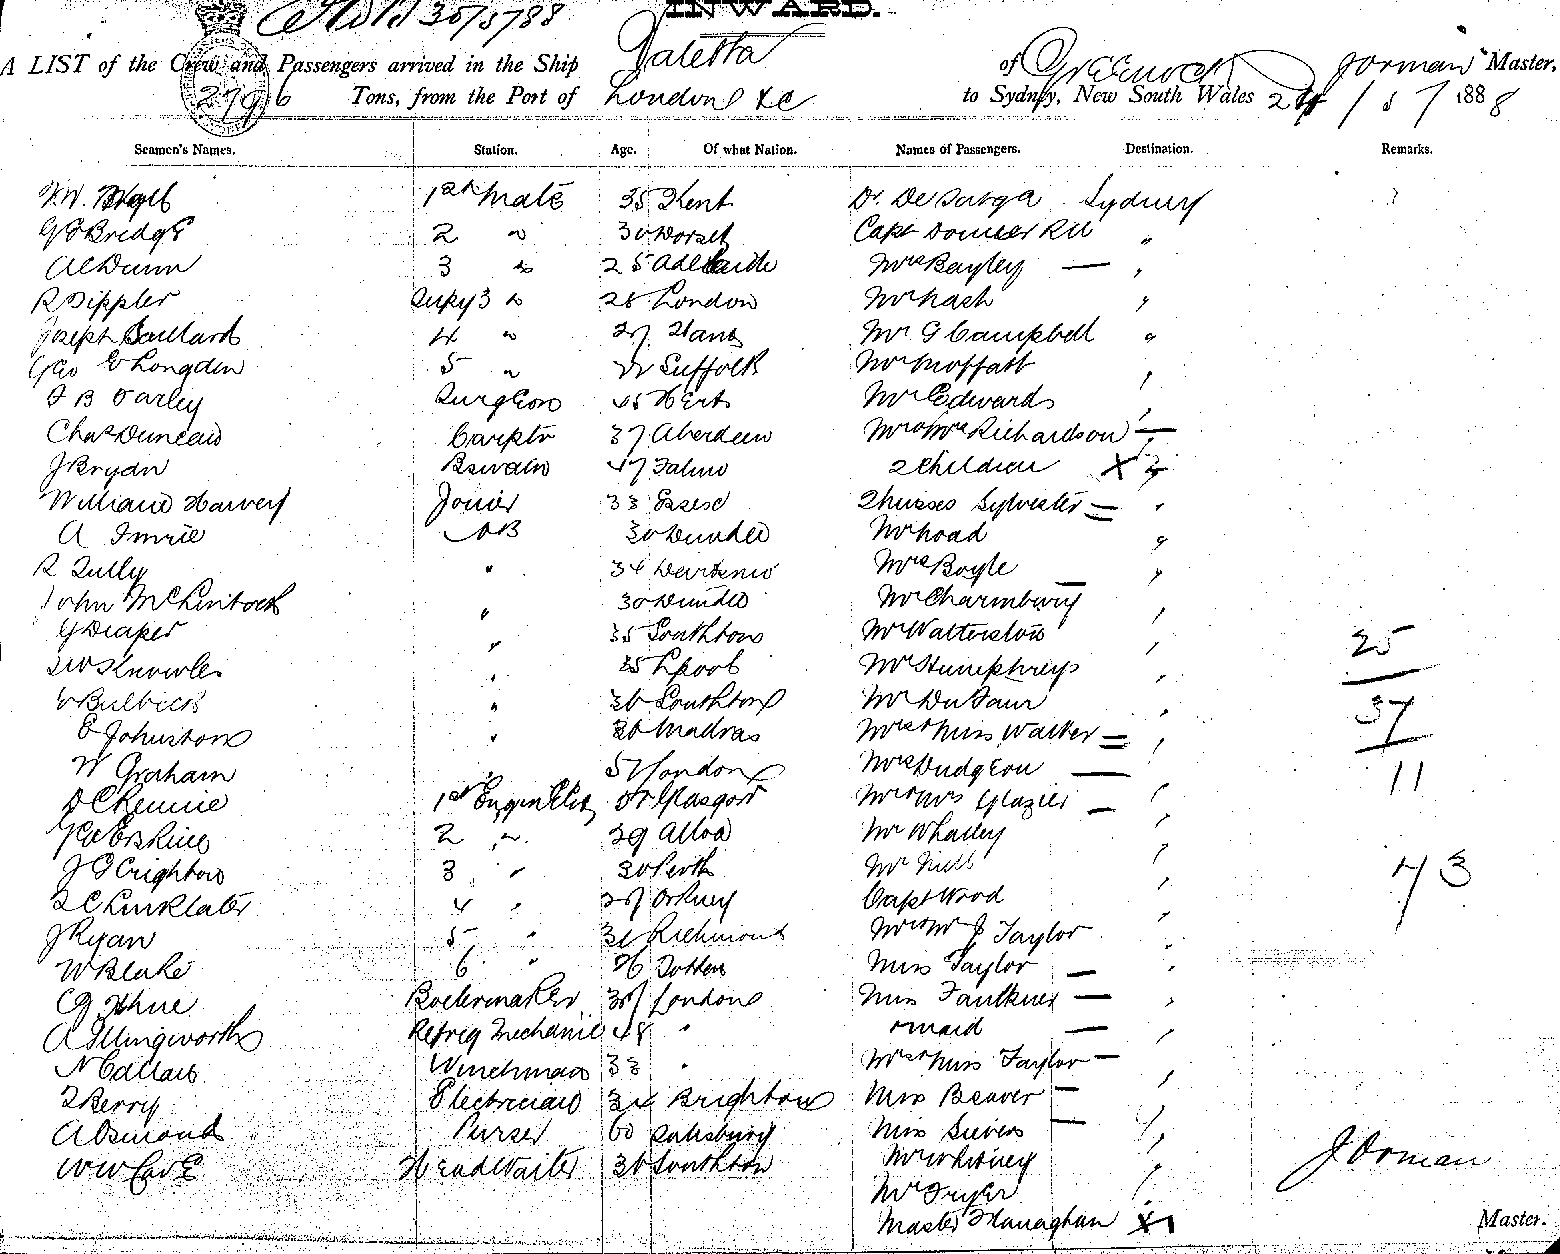 INWARD.
A LIST of the Crew and Passengers arrived in the Ship Valetta of Greenock J Orman Master,
2796 Tons, from the Port of London &c to Sydney, New South Wales 24/5/1888
Seamen's Names. Station. Age. Of what Nation. Names of Passengers. Destination. Remarks.
1st Mate 35 Kent Sydney
G E Bridge 2 " 30 Dorset Capt RN "
A C Dunn 3 " 25 Adelaide Mrs Bayley — "
R Sippler Supy 3 " 28 London Mr Nash "
Joseph 4 " 27 Hants Mr G Campbell "
Geo E Longden 5 " 22 Suffolk Mr Moffatt "
F B Varley Surgeon 45 Herts Mr Edwards "
Chas Duncan Carptr 37 Aberdeen Mr & Mrs Richardson — "
J Bryan Boswain 47 Falmo 2 Children X 2
William Harvey Joiner 33 Essex 2 Misses Sylvester = "
A Imrie AB 30 Dundee Mr Hoad "
R Tully " 34 Mrs Boyle — "
John McLintock " 30 Dundee Mr Charmbury "
G Draper " 35 Southton Mr Watterston "
25
Knowles " 35 Lpool Mr Humphreys "
Bulbeck " 36 Southton Mr Du Faur "
37
E Johnston " 36 Madras Mrs & Miss Walker = "
W Graham " 57 London Mrs Dudgeon — "
11
D C Rennie 1st Engineer Glasgow Mr & Mrs Glazier — "
Geo Erskine 2 " 29 Alloa Mr Whalley "
J G Crighton 3 " 30 Perth Mr "
73
J C Linklater 4 " 27 Orkney Capt Wood "
J Ryan 5 " 31 Richmond Mr & Mr J Taylor "
W Blake 6 " 26 Totten Miss Taylor — "
C G Boilermaker 35 London Miss Faulkner — "
A Illingworth Refrig Mechanic 48 " & maid — "
N Callan Winchman 33 " Mrs & Miss Taylor — "
J Berry Electrician 34 Brighton Miss Beaver — "
A Osmond Purser 60 Salisbury Miss Sievers — "
W W Cave Head Waiter 36 Southton Mr Whitney "
J Orman
Mr Fryer "
Master Flanaghan X 1
Master.